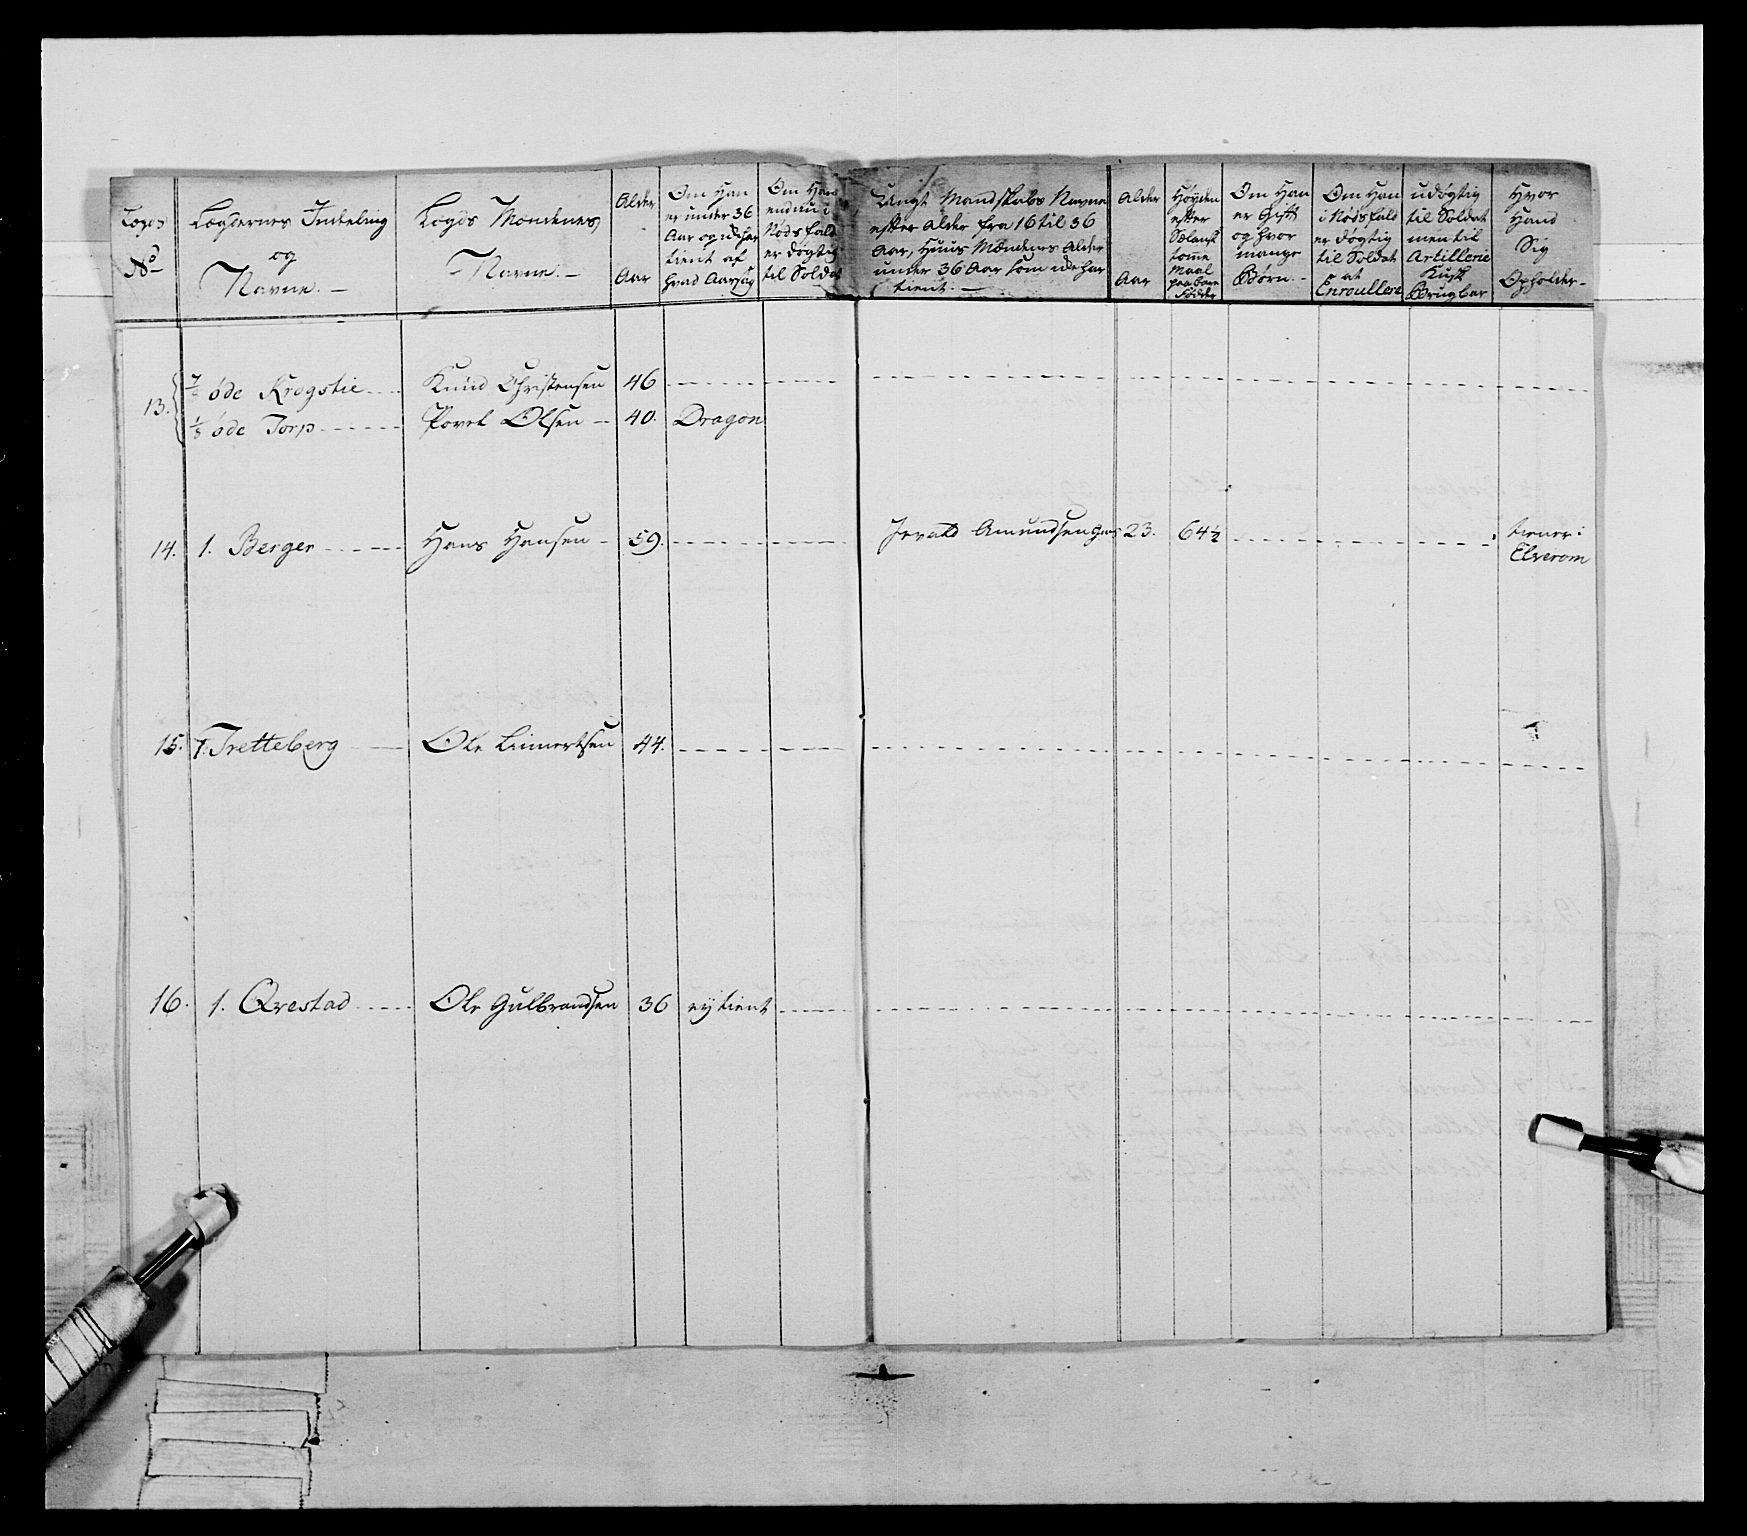 Legds No
Legdernes Indeling og Navne. —
Legds Mændenes Navne. —
Alder Aar
Om Han er under 36 Aar og icke har tient af hvad Aarsag
Om Han endnu i Nødsfald er døgtig til Soldat
Ungt Mandskabs Navne efter Alder fra 16 til 36 Aar, Huus Mændenes Alder under 36 Aar som icke har tient. —
Alder Aar
Høyden efter Sælansk tomme Maal paa bare Fødder
Om Han er Gift og hvor mange Børn. —
Om Han i Nødsfald er døgtig til Soldat at Enroullere
udøgtig til Soldat men til Artillerie Kusk Brugbar
Hvor Hand Sig Opholder.
13. øde Krogstie Knud Christensen 46
1/8 øde Torp Povel Olsen 40. Dragon
14. 1. Berger Hans Hansen 59. Amundsen 23. 64½ tiener i
Elverom
15. 1. Tretteberg Ole Limertsen 44.
16. 1. Qvestad Ole Gulbrandsen 36 ey tient